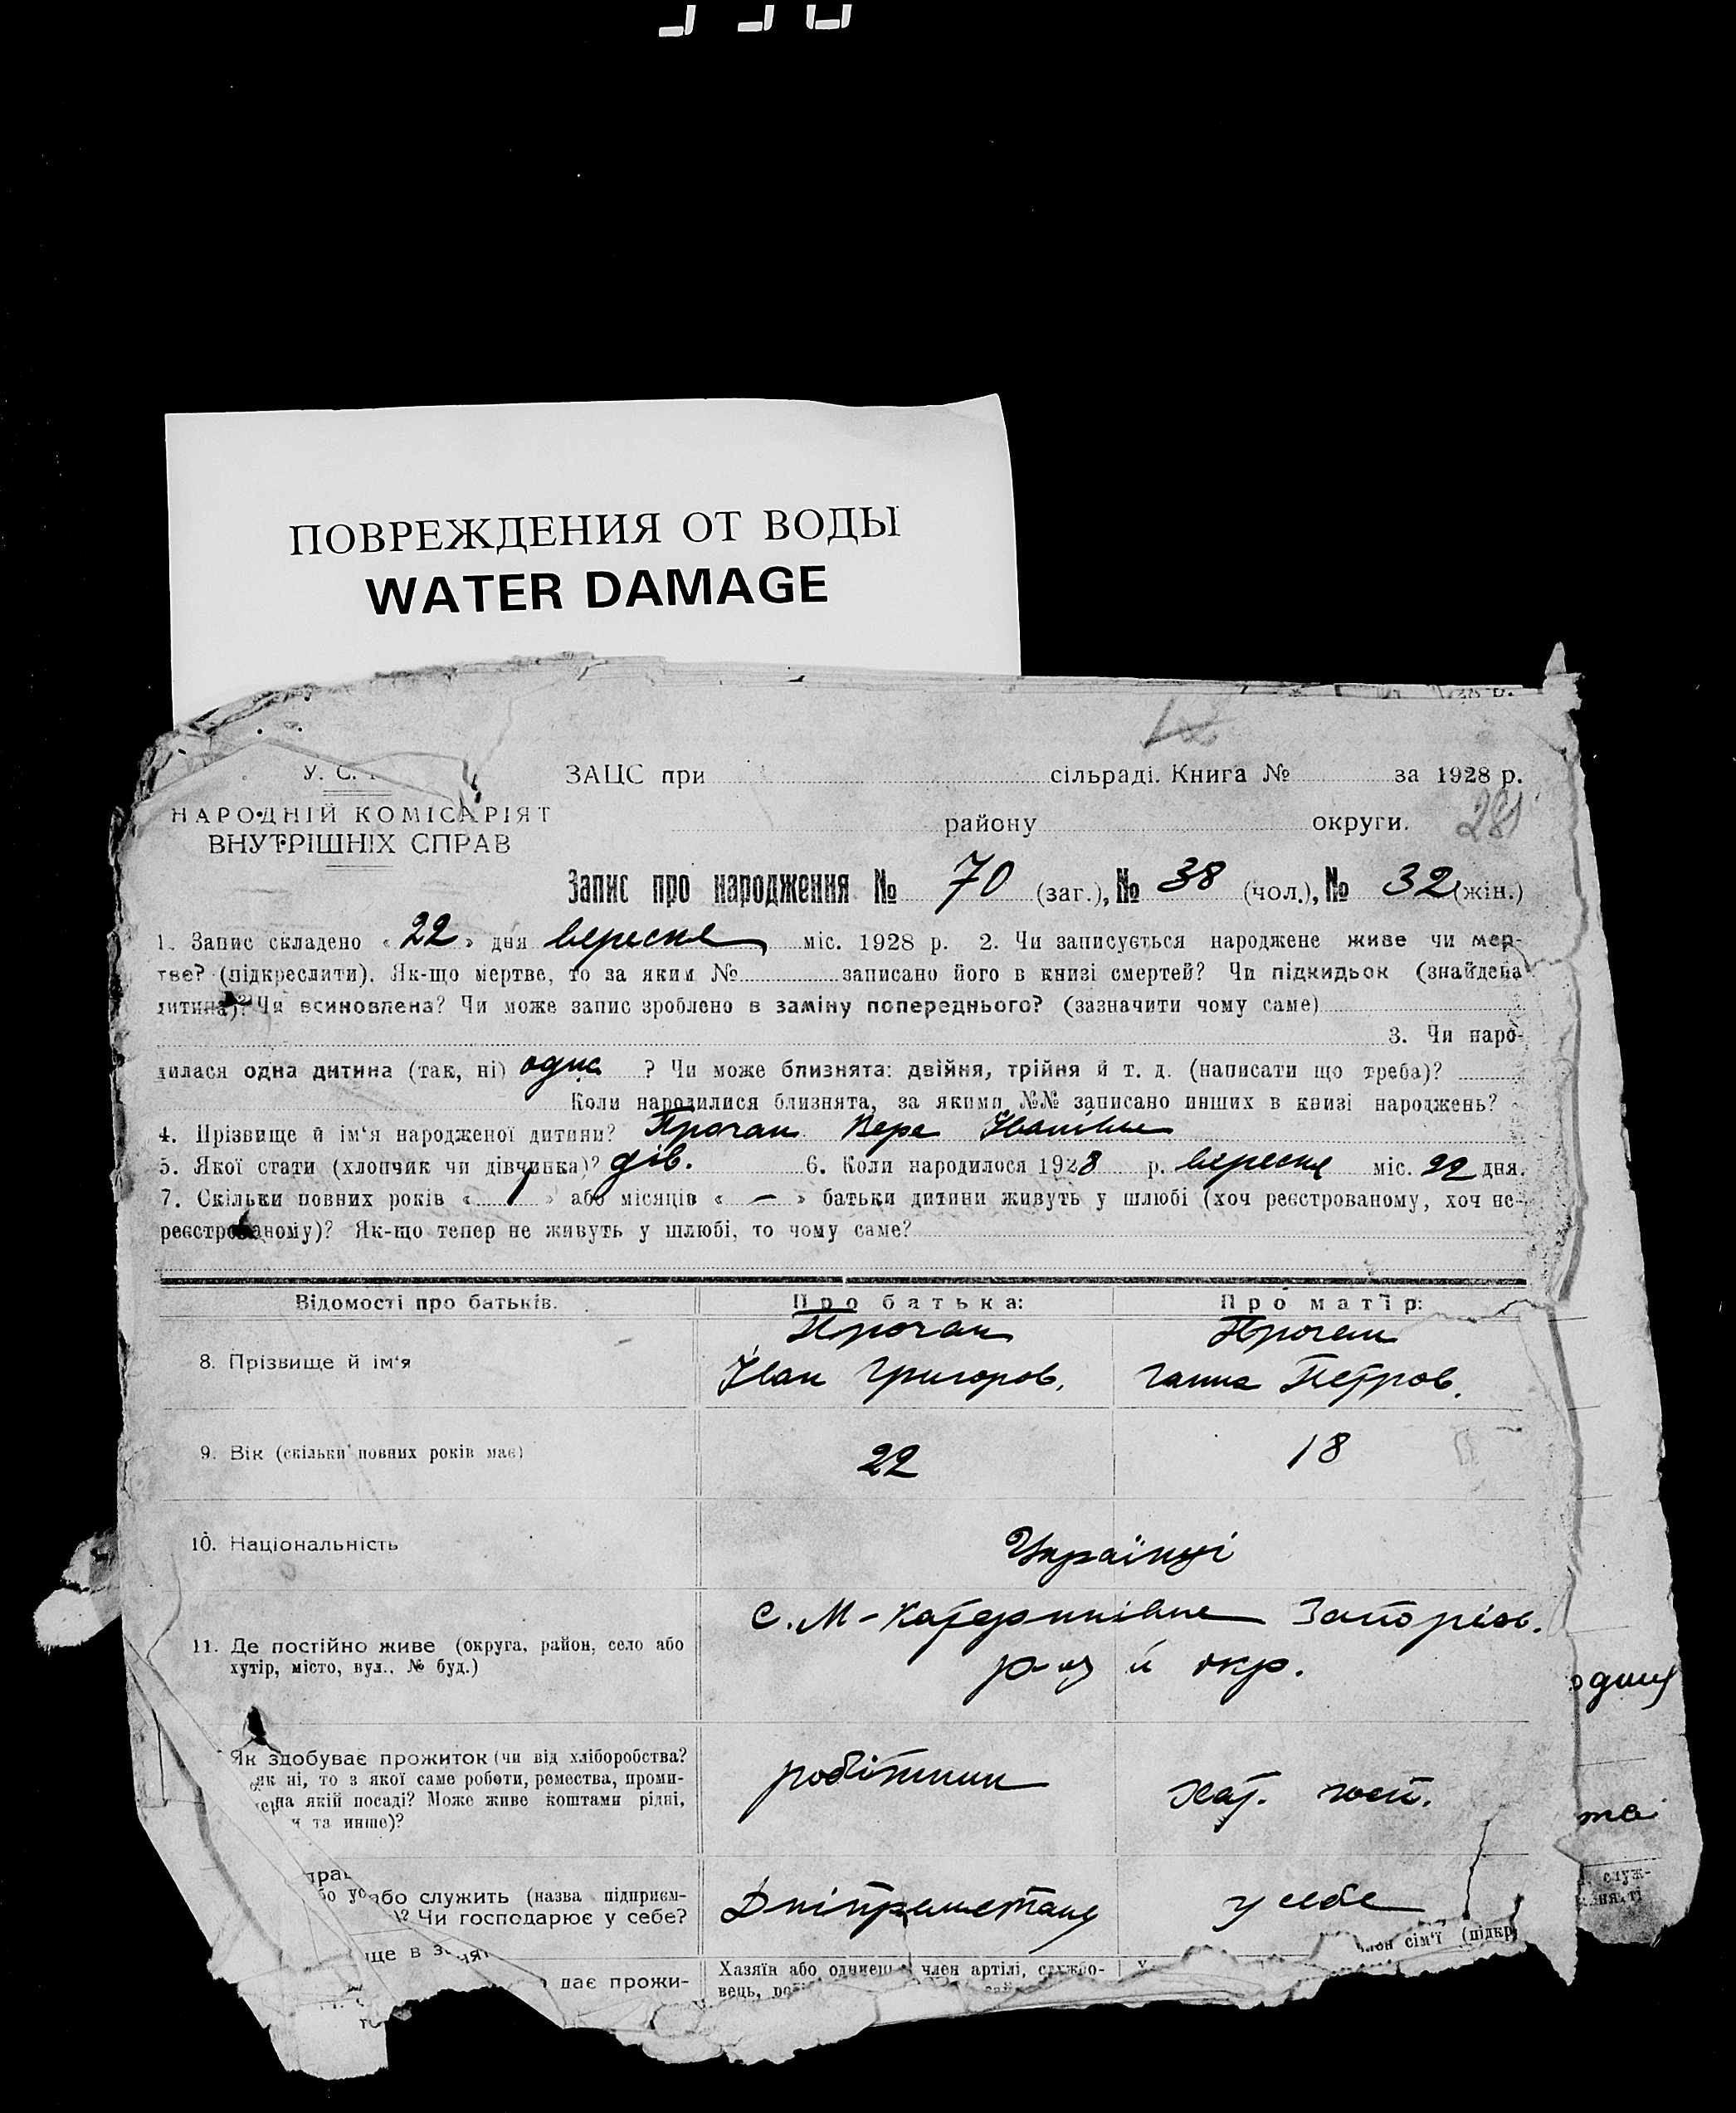 ПОВРЕЖДЕНИЯ ОТ ВОДЫ
WATER DAMAGE
У. С.
ЗАЦС при сільраді. Книга № за 1928 р.
НАРОДНІЙ КОМІСАРІЯТ
ВНУТРІШНІХ СПРАВ
району округи. 281
Запис про народження № 70 (заг.), № 38 (чол.), № 32 (жін.)
1. Запис складено «22» дня вересня міс. 1928 р. 2. Чи записується народжене живе чи мер-
тве? (підкреслити). Як-що мертве, то за яким № записано його в книзі смертей? Чи підкидьок (знайдена
дитина)? Чи всиновлена? Чи може запис зроблено в заміну попереднього? (зазначити чому саме)
3. Чи наро-
дилася одна дитина (так, ні) одна ? Чи може близнята: двійня, трійня й т. д. (написати що треба)?
Коли народилися близнята, за якими №№ записано инших в книзі народжень?
4. Прізвище й ім'я народженої дитини? Прочан Вера Іванівна
5. Якої стати (хлопчик чи дівчинка)? дів. 6. Коли народилося 1928 р. вересня міс. 22 дня.
7. Скільки повних років « 1 » або місяців « — » батьки дитини живуть у шлюбі (хоч реєстрованому, хоч не-
реєстрованому)? Як-що тепер не живуть у шлюбі, то чому саме?
Відомості про батьків. Про батька: Про матір:
8. Прізвище й ім'я
Прочан Прочан
Іван Григоров. Ганна Петров.
9. Вік (скільки повних років має) 22 18
10. Національність Українці
11. Де постійно живе (округа, район, село або
хутір, місто, вул., № буд.)
С. М-Катеринівка Запоріж.
р-ну й окр.
Як здобуває прожиток (чи від хліборобства?
як ні, то з якої саме роботи, ремества, проми-
на якій посаді? Може живе коштами рідні,
та инше)?
робітник хат. госп.
або служить (назва підприєм-
Чи господарює у себе?
у себе
ще в
дає прожи-
Хазяїн або член артілі, службо-
вець,
сім'ї (підкр
служ-